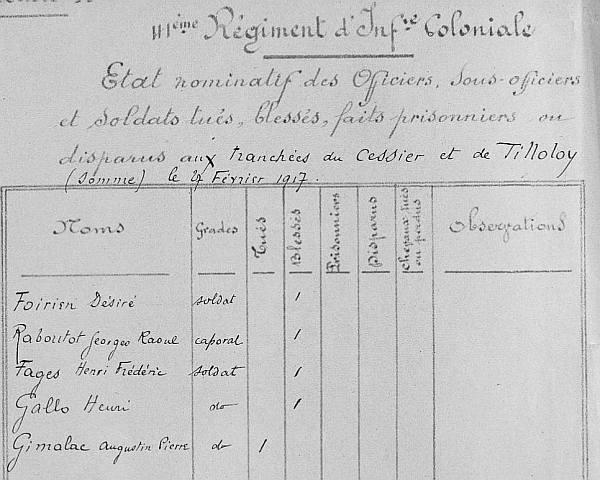 Régiment d'Inf.rie Coloniale
Etat nominatif des Officiers, sous-officiers
et soldats tués, blessés, faits prisonniers ou
disparus aux tranchées du Cessier et de Tilloloy
(Somme) le 27 Février 1917.
Noms Grades Tués Blessés Prisonniers Disparus Chevaux tués ou perdus Observations
Foirien Désiré soldat 1
Raboutot Georges Raoul caporal 1
Fages Henri Frédéric soldat 1
Gallo Henri do 1
Gimalac Augustin Pierre do 1